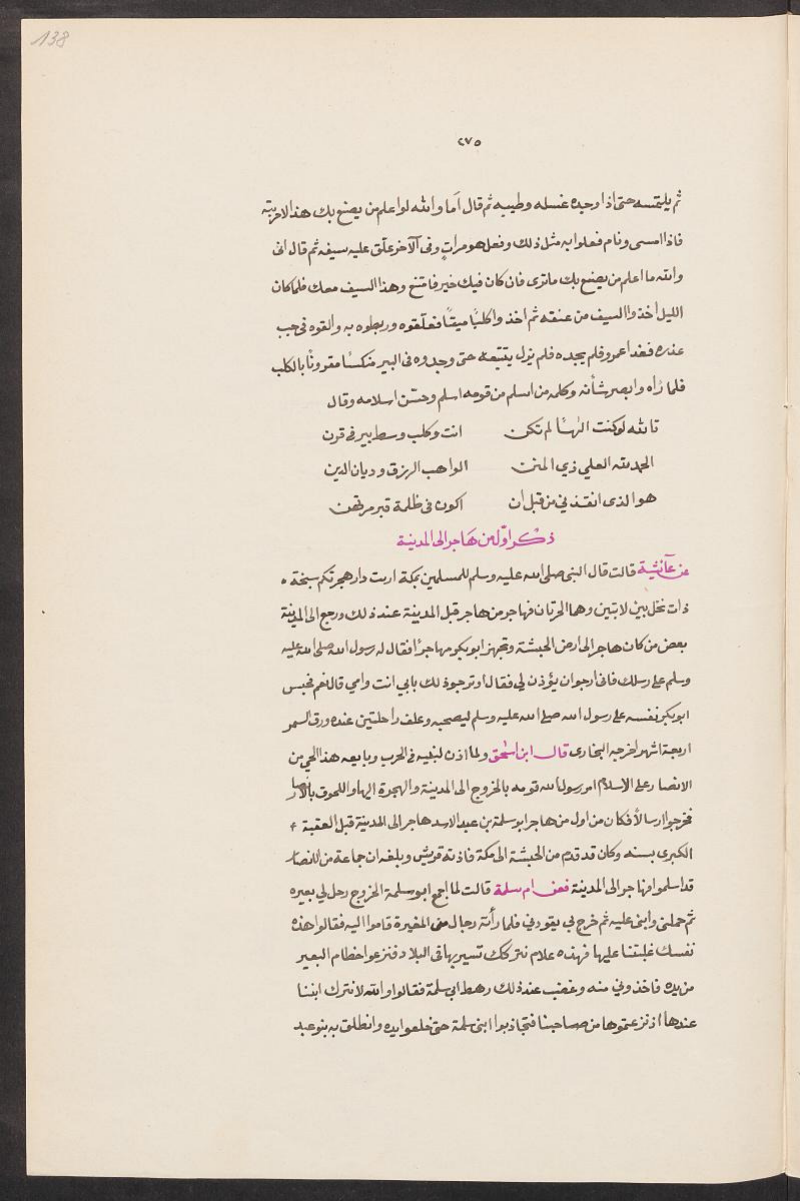 138
٢٧٥
ثم يلتمسه حتى اذا وجده غسله وطيبه ثم قال أما والله لو اعلم من يصنع بك هذا لاخزينه
فاذا امسى ونام فعلوا به مثل ذلك وفعل هو مرات وفى الآخر علّق عليه سيفه ثم قال انى
والله ما اعلم من يصنع بك ما ترى فان كان فيك خير فامتنع وهذا السيف معك فلما كان
الليل اخذوا السيف من عنقه ثم اخذوا كلبًا ميتًا فعلّقوه وربطوه به والقوه فى جب
عذره فغدا عمرو فلم يجده فلم يزل يتتبعه حتى وجدوه فى البير منكسًا مقرونًا بالكلب
فلما رأه وابصر شأنه وكلمه من اسلم من قومه اسلم وحسّن اسلامه وقال
تالله لوكنت الٰهًا لم تكن انت وكلب وسط بير فى قرن
الحمد لله العلي ذي المنن الواهب الرزق وديان الدين
هو الذى انقذني من قبل ان اكون فى ظلمة قبر مرتهن
ذكر اوّل من هَاجر الى المدينة
عن عَآئشة قالت قال النبى صلى الله عليه وسلم للمسلمين بمكة اريت دار هجرتكم سبخة
ذات نخل بين لابتين وهما الحرتان فهاجر من هاجر قبل المدينة عند ذلك ورجع الى المدينة
بعض من كان هاجر الى ارض الحبشة وتجهز ابو بكر مهاجرًا فقال له رسول الله صلى الله عليه
وسلم على رسلك فانى ارجو ان يؤذن لي فقال او ترجو ذلك بابي انت وامي قال نعم فحبس
ابو بكر نفسه على رسول الله صلى الله عليه وسلم ليصحبه وعلف راحلتين عنده ورق السمر
اربعة اشهر اخرجه البخارى قال ابن اسحٰق ولما اذن لنبيه فى الحرب وبايعه هذا الحي من
الانصار على الاسلام امر رسول الله قومه بالخروج الى المدينة والهجرة اليها واللحوق بالانصار
فخرجوا ارسالاً فكان من اول من هاجر ابو سلمة بن عبد الاسد هاجر الى المدينة قبل العقبة
الكبرى بسنه وكان قد قدم من الحبشة الى مكة فاذته قريش وبلغه ان جماعة من الانصار
قد اسلموا فهاجر الى المدينة فعن ام سلمة قالت لما اجمع ابو سلمة الخروج رحل لي بعيره
ثم حملنى وابنى عليه ثم خرج بي يقودني فلما رأته رجال بنى المغيرة قاموا اليه فقالوا هذه
نفسك غلبتنا عليها فهذه علام نتركك تسير بها فى البلاد فنزعوا خطام البعير
من يده فاخذوني منه وغضب عند ذلك رهط ابى سلمة فقالوا والله لا نترك ابننا
عندها اذ نزعتموها من صاحبنا فتجاذبوا ابنى سلمة حتى خلعوا يده وانطلق به بنو عبد